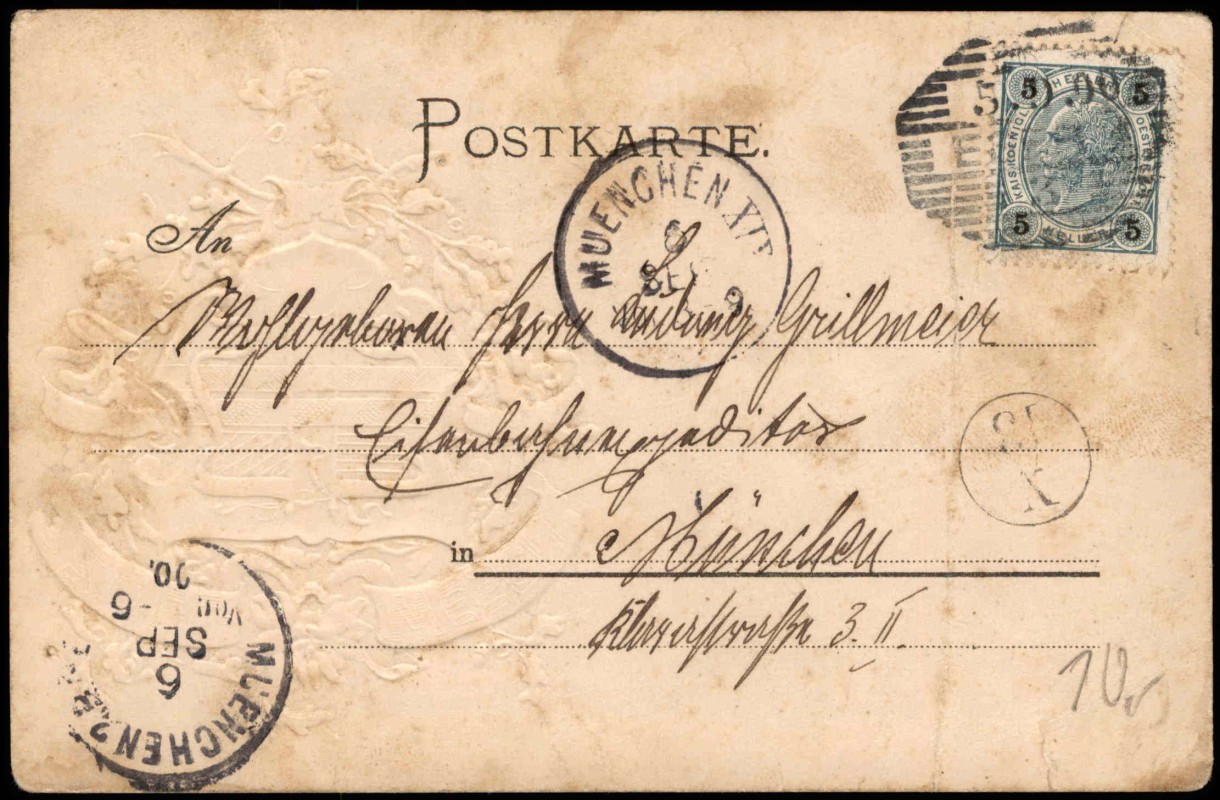 POSTKARTE.
5 5
KAISERKOENIGLICHE OESTERR.
5 5
5. 9.00
MUENCHEN XII
6
SEP
9
An
Wohlgeboren Herrn Ludwig Grillmeier
Eisenbahnexpeditor
in München
3. II
MUENCHEN 2 B.
6
SEP
Vor 6
00.
X
10